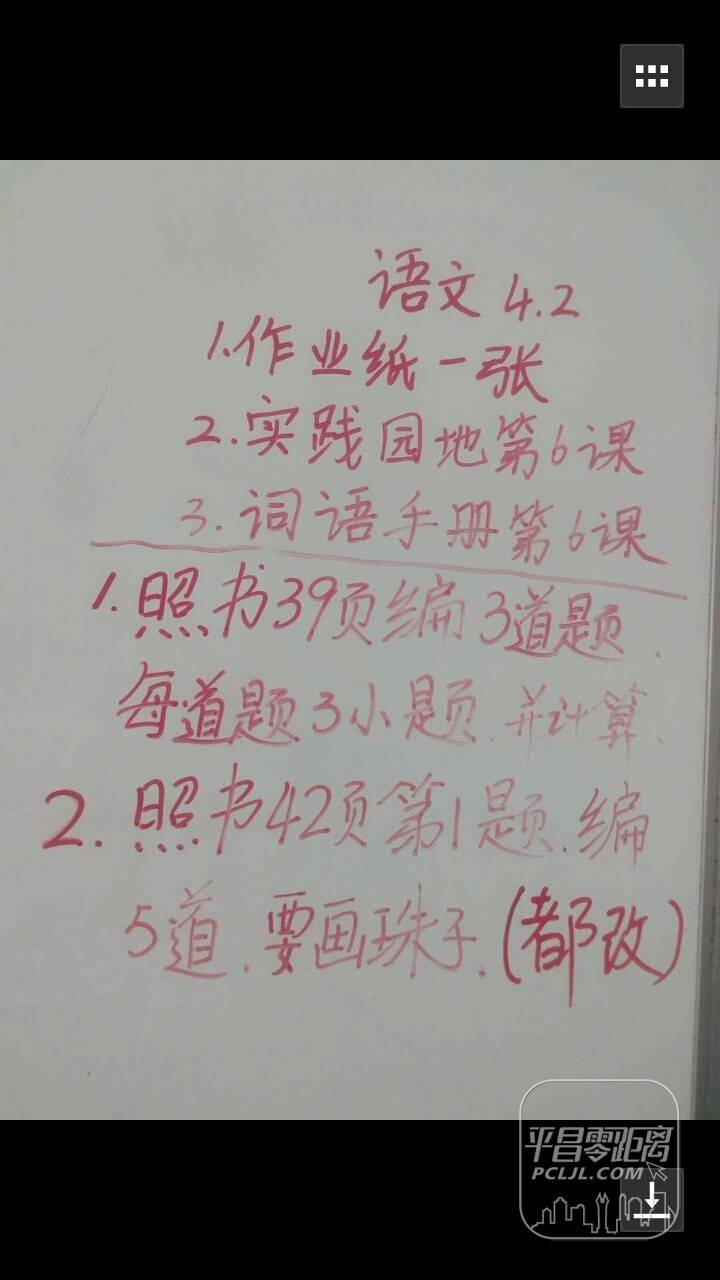 语文 4.2
1.作业纸一张
2.实践园地第6课
3.词语手册第6课
1.照书39页编3道题.
每道题3小题.并计算.
2.照书42页第1题.编
5道.要画珠子.(都改)
平昌零距离
PCLJL.COM